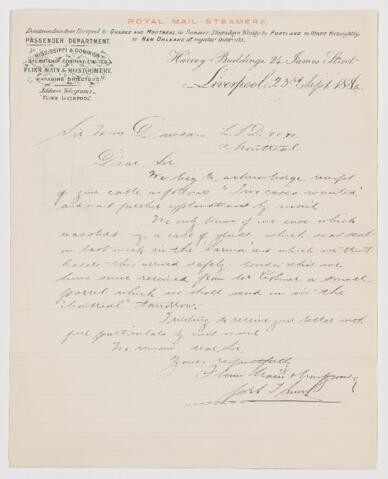 ROYAL MAIL STEAMERS.
Despatched from Liverpool to QUEBEC AND MONTREAL in Summer, Thursdays Weekly to PORTLAND in Winter Fortnightly,
to NEW ORLEANS at regular intervals.
PASSENGER DEPARTMENT.
MISSISSIPPI & DOMINION
STEAMSHIP COMPANY LIMITED
FLINN, MAIN & MONTGOMERY,
MANAGING DIRECTORS.
Address Telegrams
"FLINN LIVERPOOL"
Harvey Buildings, 24, James Street,
Liverpool, 23rd Sept 1882
Sir Wm Dawson L.L.D.
Montreal
Dear Sir
We beg to acknowledge receipt
of your cable as follows "Two cases wanted"
await further explanations by mail
We only know of one case which
was a case of glass which was sent
on last week in the "Sarnia" and which we trust
has ere this arrived safely. we
have since received from Mr a small
parcel which we shall send on in the
"Montreal" tomorrow.
Trusting to receive your letter with
full particulars by next mail
We remain dear Sir,
Yours respectfully
Flinn Main & Montgomery